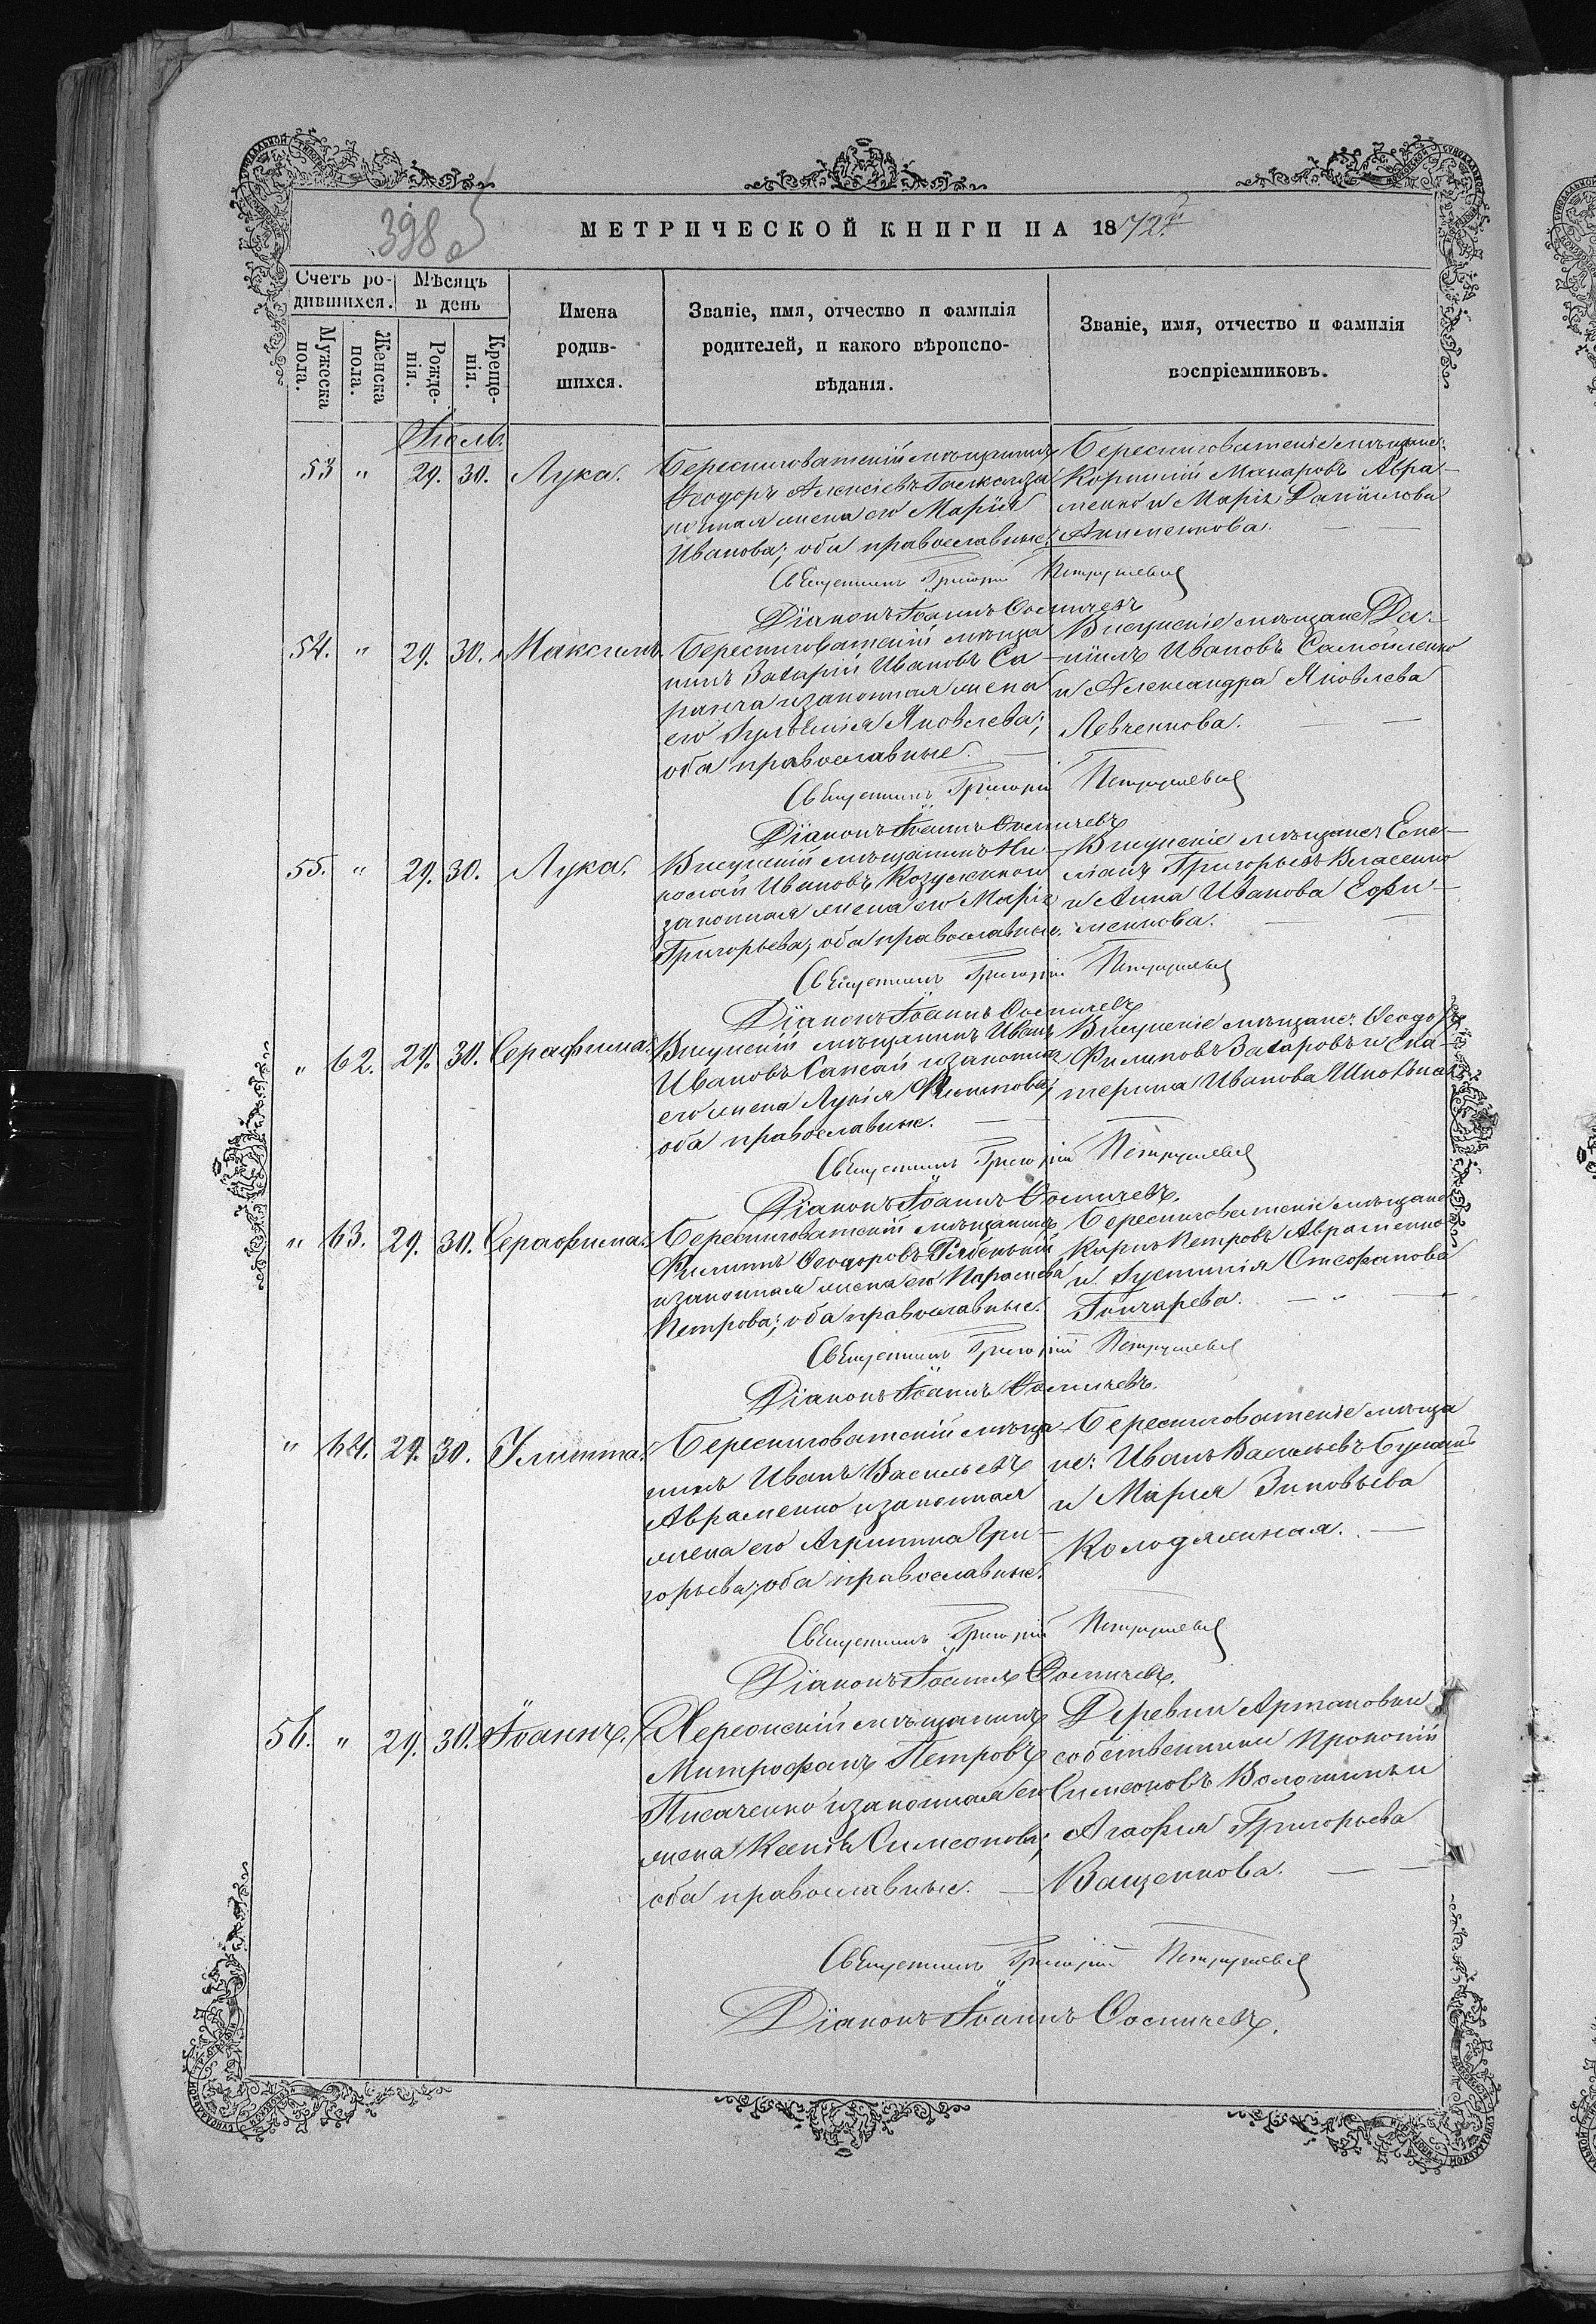 398 об
МЕТРИЧЕСКОЙ КНИГИ НА 1872й
Счетъ ро-
дившихся.
Мѣсяцъ
и день
Мужеска
пола.
Женска
пола.
Рожде-
нія.
Креще-
нія.
Имена
родив-
шихся.
Званіе, имя, отчество и фамилія
родителей, и какого вѣроиспо-
вѣданія.
Званіе, имя, отчество и фамилія
воспріемниковъ.
Іюль.
53 " 29. 30. Лука.
Береснеговатскій мѣщанинъ
Ѳеодоръ Алексіевъ
жена его Марія
Иванова; оба православные.
Береснеговатскіе мѣщане:
Корнилій Макаровъ Авра-
менко и Марія Даніилова
Акименкова.
Священникъ Григорій Петрушевскій
Діаконъ Іоаннъ
54. " 29. 30. Максимъ.
Береснеговатскій мѣща-
нинъ Захарій Ивановъ Са-
ранча и законная жена
его Іуліанія Яковлева;
оба православные.
Висунскіе мѣщане Да-
ніилъ Ивановъ Самойленко
и Александра Яковлева
Левченкова.
Священникъ Григорій Петрушевскій
Діаконъ Іоаннъ
55. " 29. 30. Лука.
Висунскій мѣщанинъ Ни-
колай Ивановъ Козуленко и
законная жена его Марія
Григорьева; оба православные.
Висунскіе мѣщане Емел-
іанъ Григорьевъ Власенко
и Анна Иванова Ефи-
менкова.
Священникъ Григорій Петрушевскій
Діаконъ Іоаннъ
" 62. 29. 30. Серафима.
Висунскій мѣщанинъ Иванъ
Ивановъ Сапсай и законная
его жена Лукія Филипова;
оба православные.
Висунскіе мѣщане: Ѳеодоръ
Филиповъ Захаровъ и Ека-
терина Иванова
Священникъ Григорій Петрушевскій
Діаконъ Іоаннъ
" 63. 29. 30. Серафима.
Береснеговатскій мѣщанинъ
Филиппъ Ѳеодоровъ Рябенькій
и законная жена его Параскева
Петрова; оба православные.
Береснеговатскіе мѣщане
Карпъ Петровъ Авраменко
и Іустинія Стефанова
Гончарева.
Священникъ Григорій Петрушевскій
Діаконъ Іоаннъ
" 64. 29. 30. Улитта.
Береснеговатскій мѣща-
нинъ Иванъ Васильевъ
Авраменко и законная
жена его Агрипина Гри-
горьева; оба православные.
Береснеговатскіе мѣща-
не: Иванъ Васильевъ
и Марія Зиновьева
Колодяжная.
Священникъ Григорій Петрушевскій
Діаконъ Іоаннъ
56. " 29. 30. Іоаннъ.
Херсонскій мѣщанинъ
Митрофанъ Петровъ
Писаченко и законная его
жена Ксенія Симеонова;
оба православные.
Деревни Артановки
собственники Прокопій
Симеоновъ Волошинъ и
Агафія Григорьева
Ващенкова.
Священникъ Григорій Петрушевскій
Діаконъ Іоаннъ